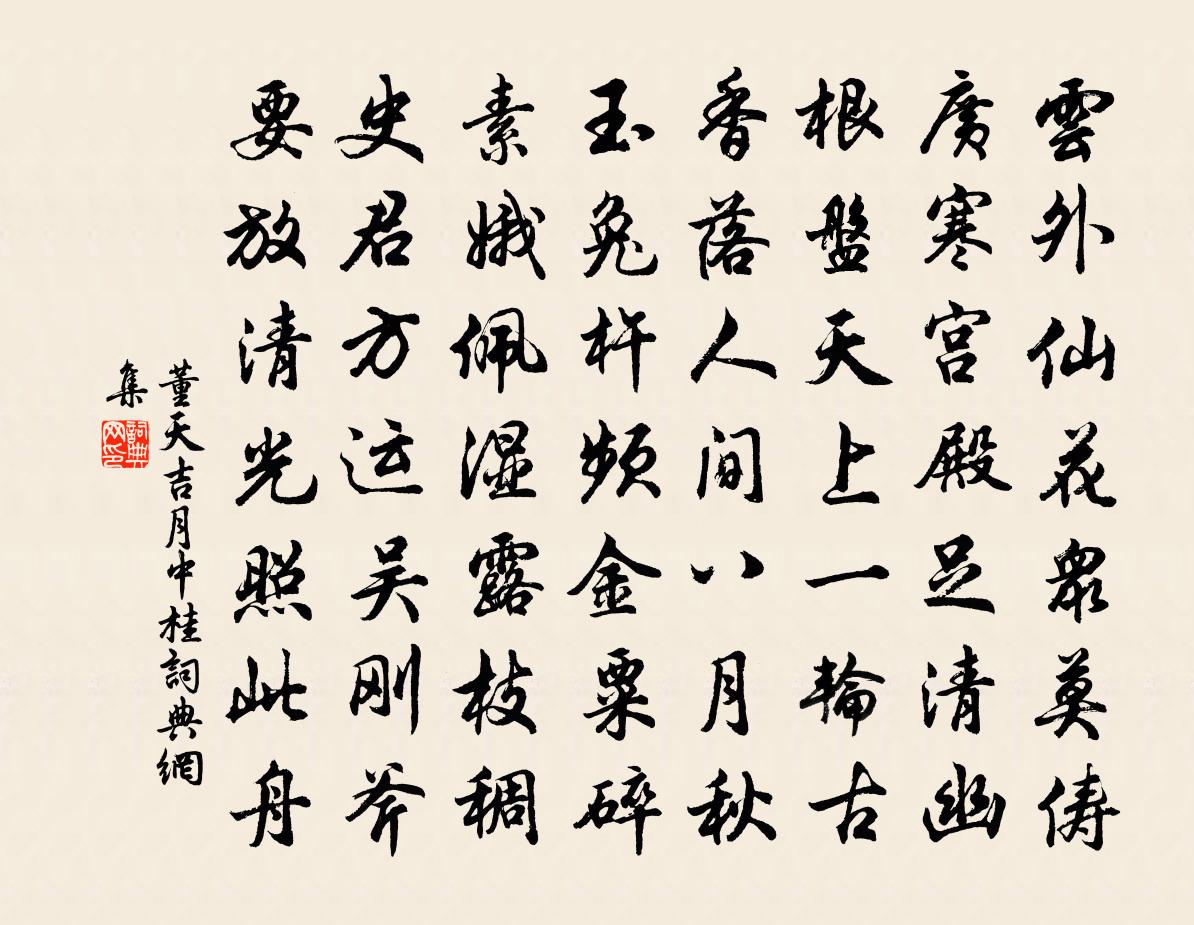 雲外仙花衆莫儔
廣寒宫殿足清幽
根盤天上一輪古
香落人间八月秋
玉兔杵频金粟碎
素娥佩湿露枝稠
史君方运吴刚斧
要放清光照此舟
董天吉月中桂詞典網
集
詞典
网印